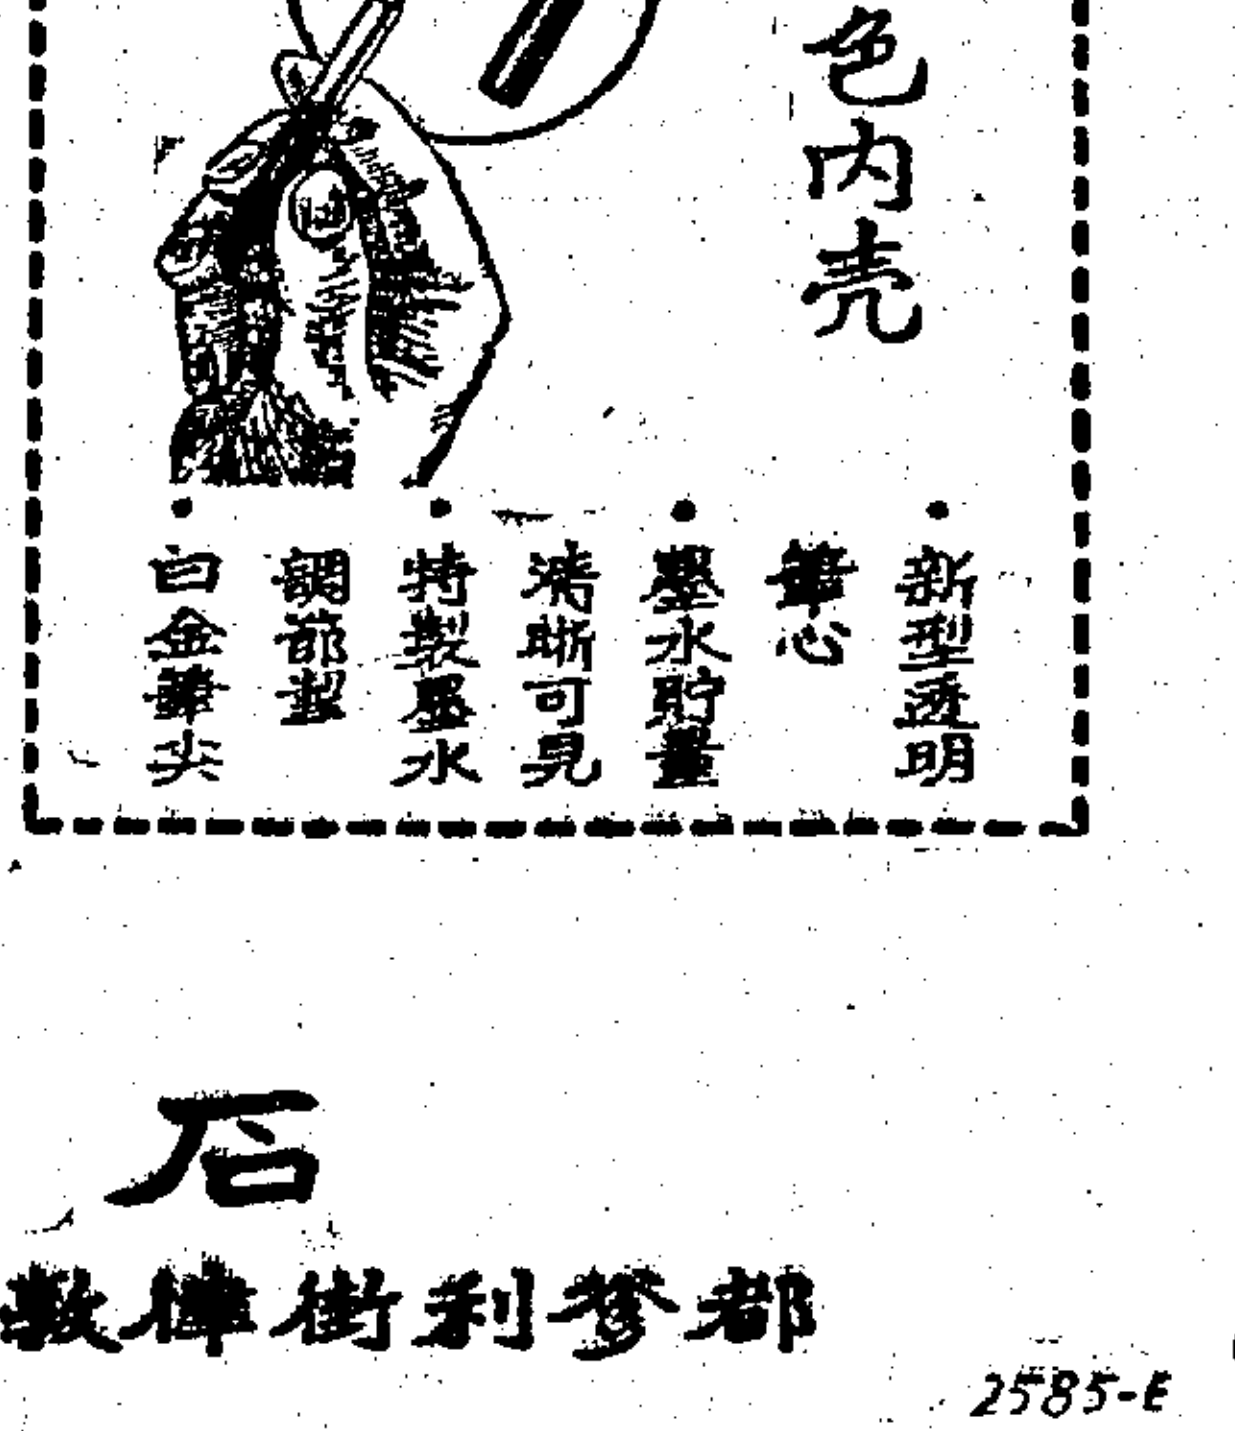 色内壳
•新型透明
筆心
•墨水貯量
清晰可見
•特製墨水
調節掣
•白金筆尖
石
都爹利街律敦
2585-E